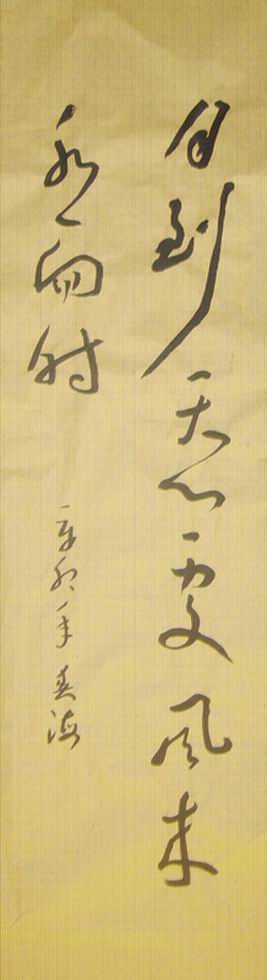 月到天心处风来
水面时
辛卯年春海